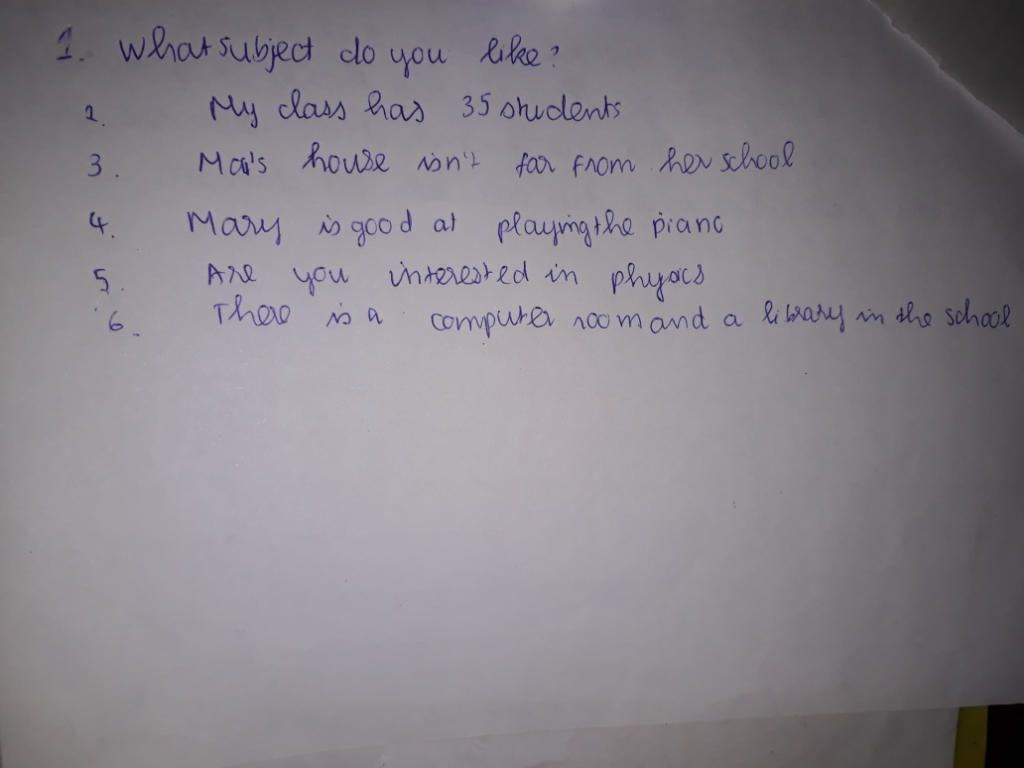 1. What subject do you like?
2. My class has 35 students
3. Mai's house isn't far from her school
4. Mary is good at playing the piano
5. Are you interested in physics
6. There is a computer room and a library in the school